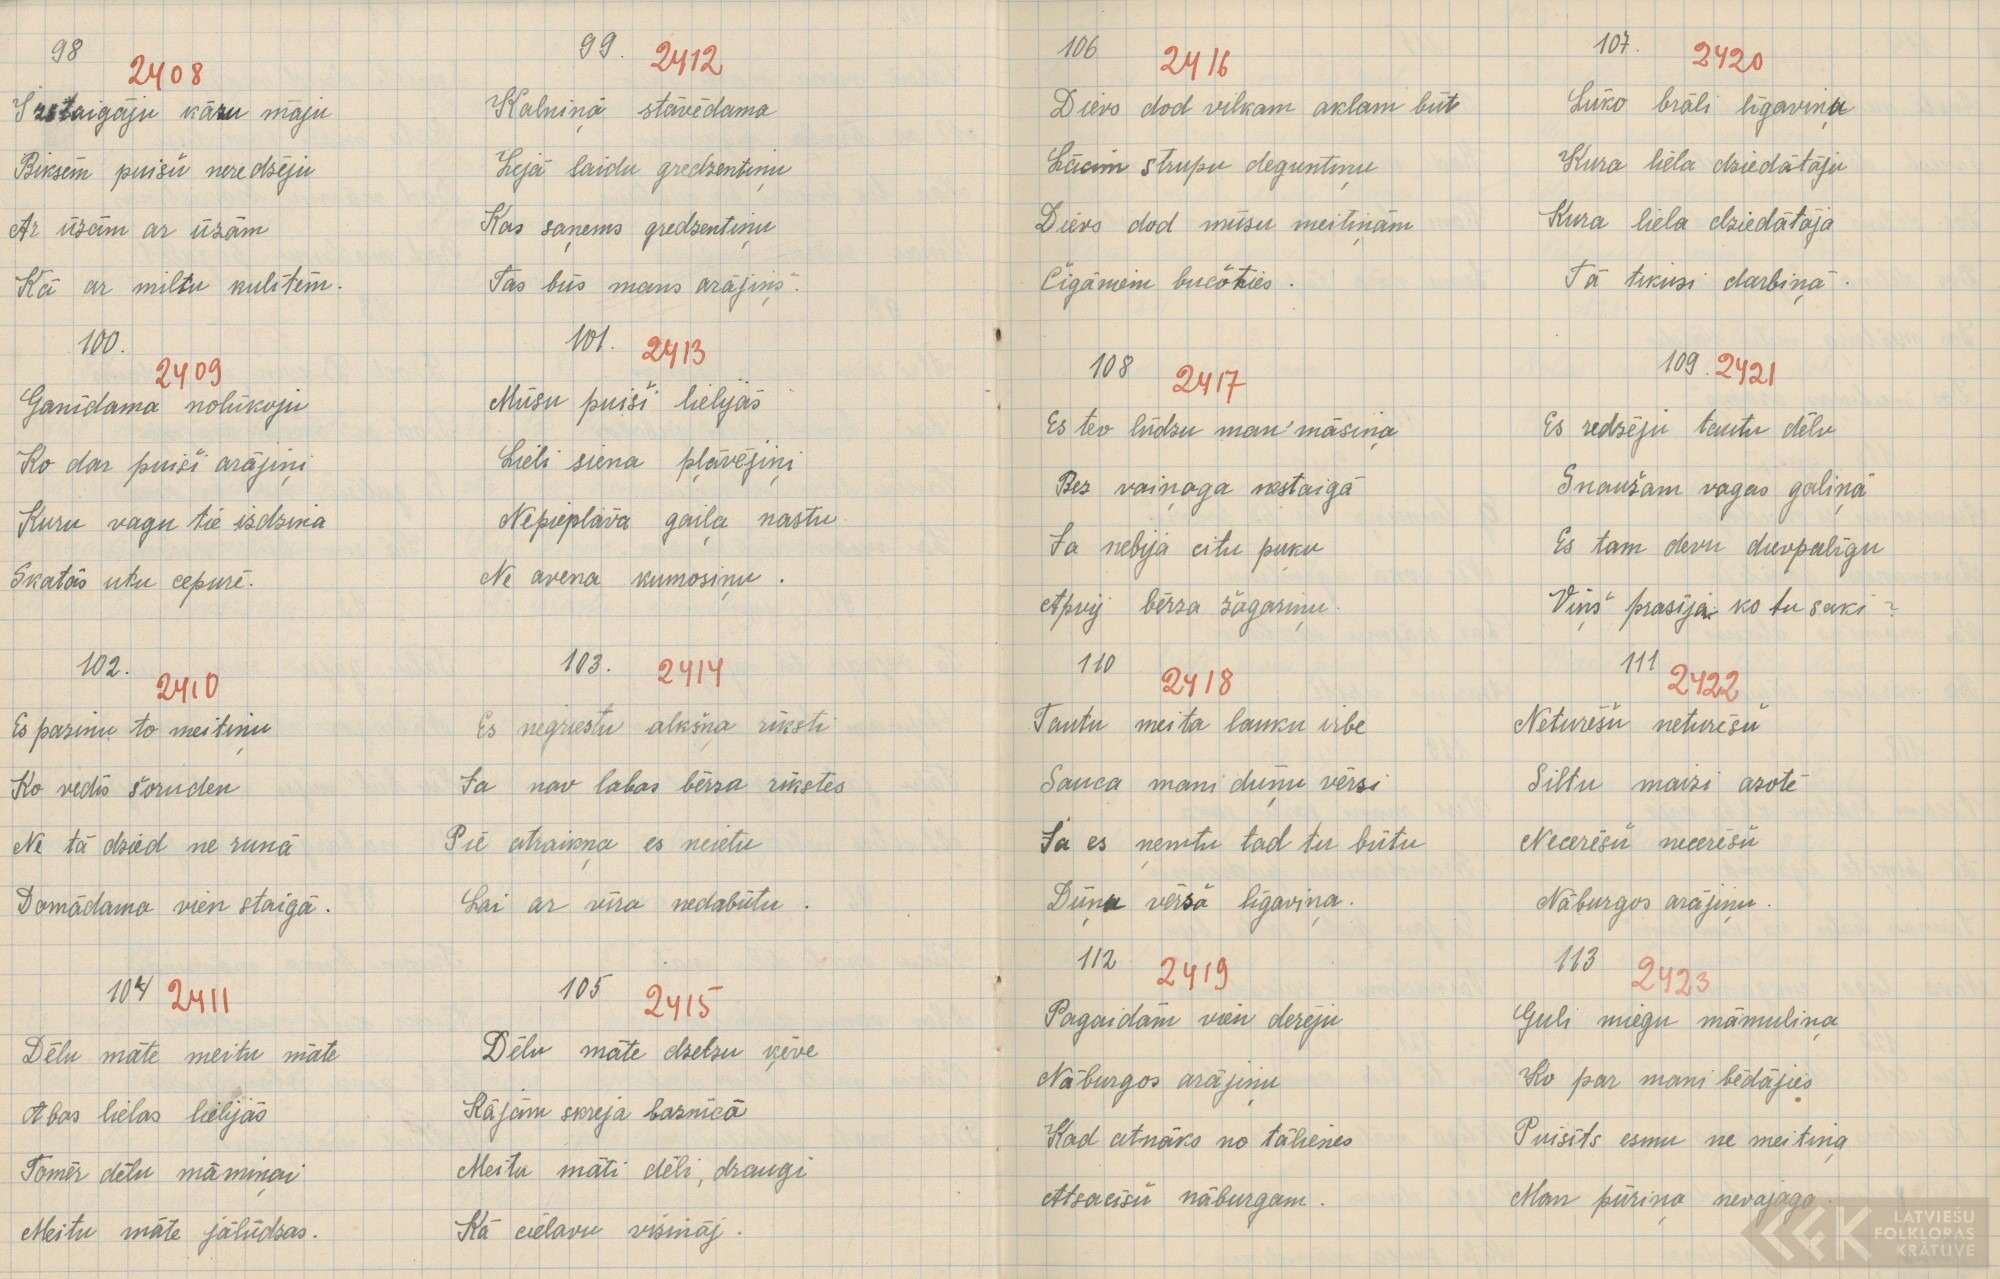 98
2408
Izstaigāju kāzu māju
Biksēm puišu neredzēju
Ar ūzām ar ūzām
Kā ar miltu kulītēm.
99.
2412
Kalniņā stāvēdama
Lejā laidu gredzentiņu
Kas saņems gredzentiņu
Tas būs mans arājiņš.
100.
2409
Ganīdama nolūkoju
Ko dar puiši arājiņi
Kuru vagu tie izdzina
Skatās utu cepurē.
101.
2413
Mūsu puiši lielijās
Lieli siena pļāvējiņi
Nepiepļāva gaiļa nastu
Ne avena kumosiņu.
102.
2410
Es pazinu to meitiņu
Ko vedīs šoruden
Ne tā dzied ne runā
Domādama vien staigā.
103.
2414
Es negriestu alkšņa rīksti
Ja nav labas bērza rīkstes
Pie atraikņa es neietu
Lai ar vīra nedabūtu.
104
2411
Dēlu māte meitu māte
Abas lielas lielijās
Tomēr dēlu māmiņai
Meitu māte jālūdzas.
105
2415
Dēlu māte dzelzu ķēve
Kājām skreja baznīcā
Meitu māti dēli, draugi
Kā cielavu vizināj.
106
2416
Dievs dod vilkam aklam būt
Lācim strupu deguntiņu
Dievs dod mūsu meitiņām
Čigāniem bučoties.
107.
2420
Lūko brāli līgaviņu
Kura liela dziedātāju
Kura liela dziedātāja
Tā tikusi darbiņā.
108
2417
Es tev lūdzu man' māsiņa
Bez vaiņaga nestaigā
Ja nebija citu puķu
Apvij bērza žagariņu.
109.
2421
Es redzēju tautu dēlu
Snaužam vagas galiņā
Es tam devu dievpalīgu
Viņš prasīja ko tu saki?
110
2418
Tautu meita lauku irbe
Sauca mani dūņu vērsi
Ja es ņemtu tad tu būtu
Dūņu vērša līgaviņa.
111
2422
Neturēšu neturēšu
Siltu maizi azotē
Necerēšu necerēšu
Nāburgos arājiņu.
112
2419
Pagaidām vien derēju
Nāburgos arājiņu
Kad atnāks no tālienes
Atsacīšu nāburgam.
113
2423
Guli miegu māmuliņa
Ko par mani bēdājies
Puisīts esmu ne meitiņa
Man pūriņa nevajaga
LATVIEŠU
FOLKLORAS
KRĀTUVE